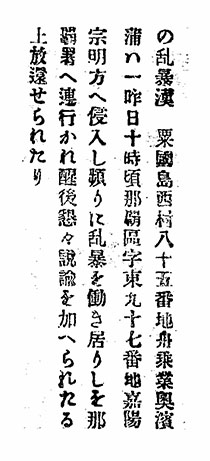 の乱暴漢　粟國島西村八十五番地舟乗業與濱
蒲ハ一昨日十時頃那覇區字東九十七番地嘉陽
宗明方へ侵入し頻りに乱暴を働き居りしを那
覇署へ連行かれ醒後懇々説諭を加へられたる
上放還せられたり